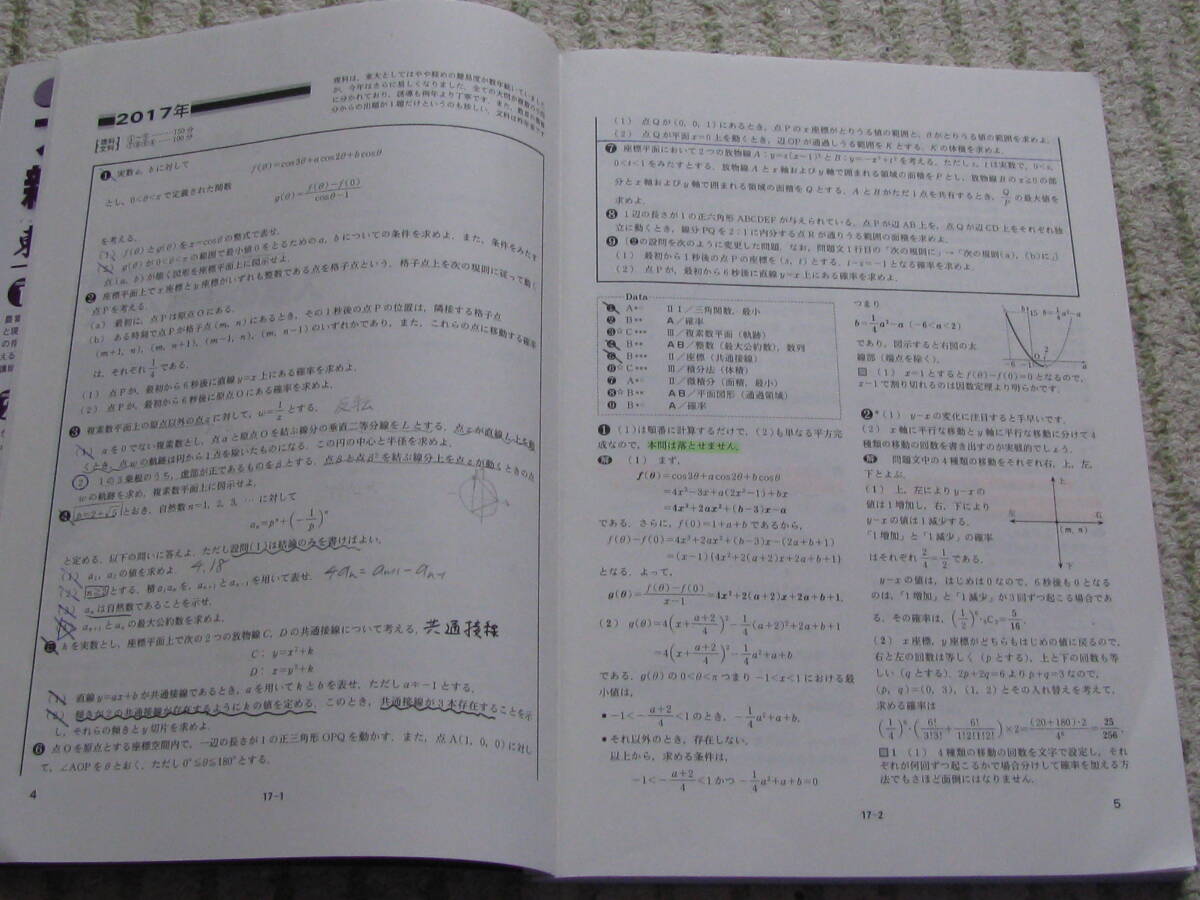 2017年
理科は，東大としてはやや軽めの難易度が数年続いていました
が，今年はさらに易しくなりました．全ての大問が複数の小問
に分かれており，誘導も例年より丁寧です．また，
分からの出題が1題だけというのも珍しい．文科は昨年並で
理科 ①〜⑥……150分
文科 ……100分
❶ 実数a，bに対して
f(θ)=cos3θ+acos2θ+bcosθ
とし，0<θ<πで定義された関数
g(θ)=(f(θ)-f(0))/(cosθ-1)
を考える．
f(θ)とg(θ)をx=cosθの整式で表せ．
g(θ)が0<θ<πの範囲で最小値0をとるためのa，bについての条件を求めよ．また，条件をみたす
点(a，b)が描く図形を座標平面上に図示せよ．
❷ 座標平面上でx座標とy座標がいずれも整数である点を格子点という．格子点上を次の規則に従って動く
点Pを考える．
(a) 最初に，点Pは原点Oにある．
(b) ある時刻で点Pが格子点(m，n)にあるとき，その1秒後の点Pの位置は，隣接する格子点
(m+1，n)，(m，n+1)，(m-1，n)，(m，n-1)のいずれかであり，また，これらの点に移動する確率
は，それぞれ1/4である．
(1) 点Pが，最初から6秒後に直線y=x上にある確率を求めよ．
(2) 点Pが，最初から6秒後に原点Oにある確率を求めよ．
❸ 複素数平面上の原点以外の点zに対して，w=1/zとする． 反転
αを0でない複素数とし，点αと原点Oを結ぶ線分の垂直二等分線をLとする．点zが直線L上を動
くとき，点wの軌跡は円から1点を除いたものになる．この円の中心と半径を求めよ．
② 1の3乗根のうち，虚部が正であるものをβとする．点βと点β²を結ぶ線分上を点zが動くときの点
wの軌跡を求め，複素数平面上に図示せよ．
❹ p=2+√5とおき，自然数n=1，2，3，…に対して
aₙ=pⁿ+(-1/p)ⁿ
と定める．以下の問いに答えよ．ただし設問(1)は結論のみを書けばよい．
a₁，a₂の値を求めよ． 4,18
n≧2とする．積a₁aₙを，aₙ₊₁とaₙ₋₁を用いて表せ． 4aₙ=aₙ₊₁-aₙ₋₁
aₙは自然数であることを示せ．
aₙ₊₁とaₙの最大公約数を求めよ．
❺ kを実数とし，座標平面上で次の2つの放物線C，Dの共通接線について考える． 共通接線
C：y=x²+k
D：x=y²+k
直線y=ax+bが共通接線であるとき，aを用いてkとbを表せ．ただしa≠-1とする．
傾きが2の共通接線が存在するようにkの値を定める．このとき，共通接線が3本存在することを示
し，それらの傾きとy切片を求めよ．
❻ 点Oを原点とする座標空間内で，一辺の長さが1の正三角形OPQを動かす．また，点A(1，0，0)に対し
て，∠AOPをθとおく．ただし0°≦θ≦180°とする．
4
17-1
(1) 点Qが(0，0，1)にあるとき，点Pのx座標がとりうる値の範囲と，θがとりうる値の範囲を求めよ．
(2) 点Qが平面x=0上を動くとき，辺OPが通過しうる範囲をKとする．Kの体積を求めよ．
❼ 座標平面において2つの放物線A：y=s(x-1)²とB：y=-x²+t²を考える．ただしs，tは実数で，0<s，
0<t<1をみたすとする．放物線Aとx軸およびy軸で囲まれる領域の面積をPとし，放物線Bのx≧0の部
分とx軸およびy軸で囲まれる領域の面積をQとする．AとBがただ1点を共有するとき，Q/Pの最大値を
求めよ．
❽ 1辺の長さが1の正六角形ABCDEFが与えられている．点Pが辺AB上を，点Qが辺CD上をそれぞれ独
立に動くとき，線分PQを2：1に内分する点Rが通りうる範囲の面積を求めよ．
❾ (❷の設問を次のように変更した問題．なお，問題文1行目の「次の規則に」→「次の規則(a)，(b)に」)
(1) 最初から1秒後の点Pの座標を(s，t)とする．t-s=-1となる確率を求めよ．
(2) 点Pが，最初から6秒後に直線y=x上にある確率を求めよ．
Data
❶ A*○ Ⅱ1／三角関数，最小
❷ B** A／確率
❸☆ C*** Ⅲ／複素数平面（軌跡）
❹ B** AB／整数（最大公約数），数列
❺ B** Ⅱ／座標（共通接線）
❻☆ C*** Ⅲ／積分法（体積）
❼ A*○ Ⅱ／微積分（面積，最小）
❽☆ B** AB／平面図形（通過領域）
❾ B*○ A／確率
❶ (1)は順番に計算するだけで，(2)も単なる平方完
成なので，本問は落とせません．
解 (1) まず，
f(θ)=cos3θ+acos2θ+bcosθ
=4x³-3x+a(2x²-1)+bx
=4x³+2ax²+(b-3)x-a
である．さらに，f(0)=1+a+bであるから，
f(θ)-f(0)=4x³+2ax²+(b-3)x-(2a+b+1)
=(x-1){4x²+2(a+2)x+2a+b+1}
となる．よって，
g(θ)=(f(θ)-f(0))/(x-1)=4x²+2(a+2)x+2a+b+1．
(2) g(θ)=4(x+(a+2)/4)²-1/4(a+2)²+2a+b+1
=4(x+(a+2)/4)²-1/4a²+a+b
である．g(θ)の0<θ<πつまり-1<x<1における最
小値は，
•-1<-(a+2)/4<1のとき，-1/4a²+a+b，
•それ以外のとき，存在しない．
以上から，求める条件は，
-1<-(a+2)/4<1かつ-1/4a²+a+b=0
つまり
b=1/4a²-a (-6<a<2)
であり，図示すると右図の太
線部（端点を除く）．
b 15 b=1/4a²-a
-6 -1 O 2 a
(1) x=1とするとf(θ)-f(0)=0となるので，
x-1で割り切れるのは因数定理より明らかです．
❷ (1) y-xの変化に注目すると手早いです．
(2) x軸に平行な移動とy軸に平行な移動に分けて4
種類の移動の回数を書き出すのが実戦的でしょう．
解 問題文中の4種類の移動をそれぞれ右，上，左，
下とよぶ．
(1) 上，左によりy-xの
値は1増加し，右，下により
y-xの値は1減少する．
「1増加」と「1減少」の確率
はそれぞれ2/4=1/2である．
上
左 右
(m，n)
下
y-xの値は，はじめは0なので，6秒後も0となる
のは，「1増加」と「1減少」が3回ずつ起こる場合であ
る．その確率は，(1/2)⁶・₆C₃=5/16．
(2) x座標，y座標がどちらもはじめの値に戻るので，
右と左の回数は等しく（pとする），上と下の回数も等
しい（qとする）．2p+2q=6よりp+q=3なので，
(p，q)=(0，3)，(1，2)とその入れ替えを考えて，
求める確率は
(1/4)⁶・(6!/3!3!+6!/1!1!2!2!)×2=(20+180)・2/4⁶=25/256．
1 (1) 4種類の移動の回数を文字で設定し，それ
ぞれが何回ずつ起こるかで場合分けして確率を加える方
法でもさほど面倒にはなりません．
17-2
5